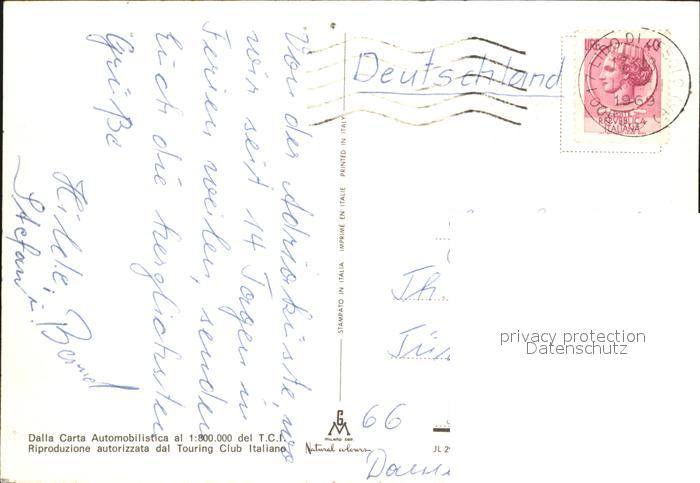 Von der Adriaküste, wo
wir seit 14 Tagen in
Ferien weilen, senden
Euch die herzlichsten
Grüße
Hilde,
Stefan i.
Bernd
Deutschland
LIRE 40
1969
REPUBBLICA
ITALIANA
STAMPATO IN ITALIA IMPRIMÉ EN ITALIE PRINTED IN ITALY
Th.
66
privacy protection
Datenschutz
Dalla Carta Automobilistica al 1:800.000 del T.C.I.
Riproduzione autorizzata dal Touring Club Italiano
GM
MILANO
Natural colours
JL 2